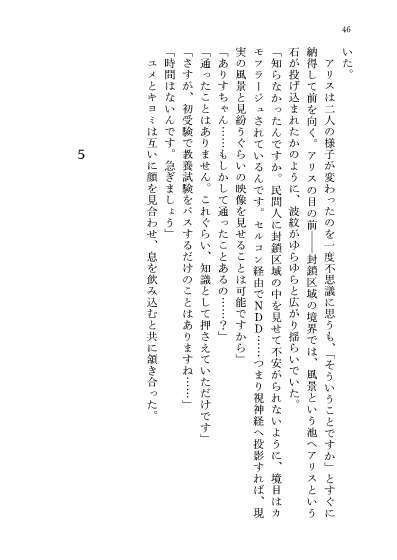 46
いた。
アリスは二人の様子が変わったのを一度不思議に思うも、「そういうことですか」とすぐに
納得して前を向く。アリスの目の前――封鎖区域の境界では、風景という池へアリスという
石が投げ込まれたかのように、波紋がゆらゆらと広がり揺らいでいた。
「知らなかったんですか。民間人に封鎖区域の中を見せて不安がられないように、境目はカ
モフラージュされているんです。セルコン経由でNDD……つまり視神経へ投影すれば、現
実の風景と見紛うぐらいの映像を見せることは可能ですから」
「ありすちゃん……もしかして通ったことあるの……？」
「通ったことはありません。これぐらい、知識として押さえていただけです」
「さすが、初受験で教養試験をパスするだけのことはありますね……」
「時間はないんです。急ぎましょう」
ユメとキヨミは互いに顔を見合わせ、息を飲み込むと共に頷き合った。
5